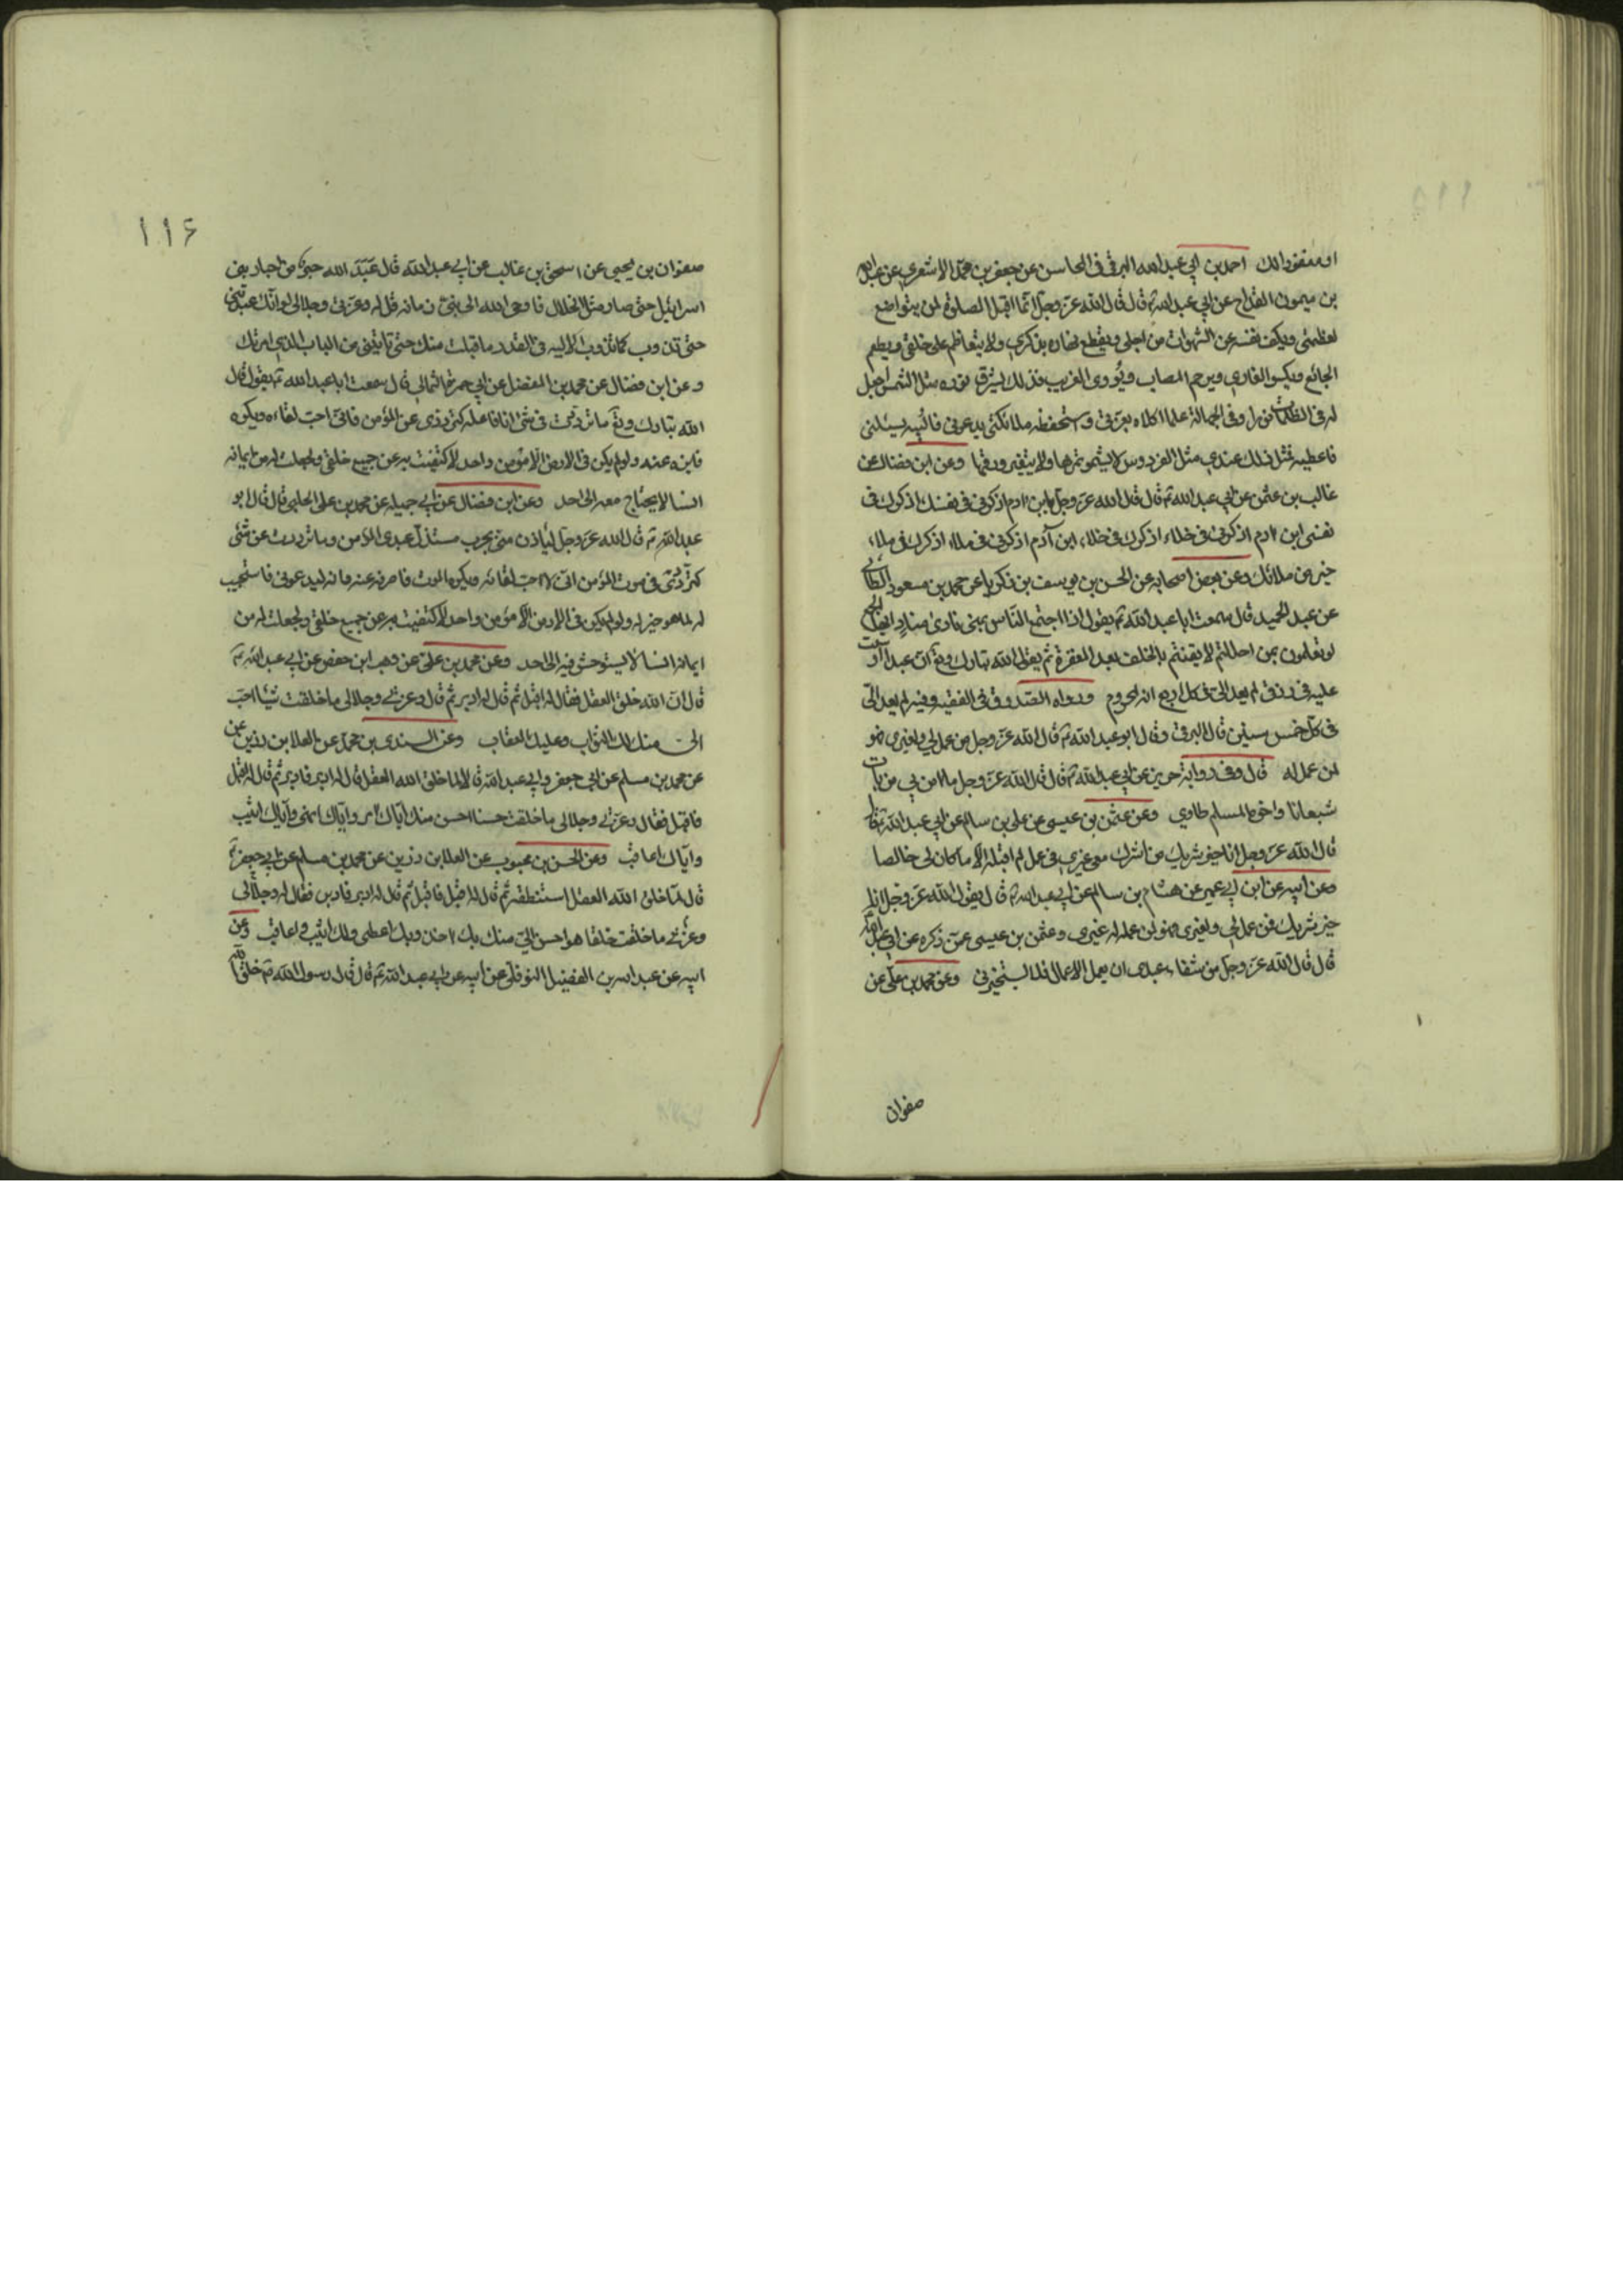 او مغفورا لك احمد بن ابي عبد الله البرقي في المحاسن عن جعفر بن محمد الاشعري عن عبد الله
بن ميمون القداح عن ابي عبد الله ع قال قال الله عز وجل انما اقبل الصلوة لمن يتواضع
لعظمتي ويكف نفسه عن الشهوات من اجلي ويقطع نهاره بذكري ولا يتعاظم على خلقي ويطعم
الجائع ويكسو العاري ويرحم المصاب ويؤوي الغريب فذلك يشرق نوره مثل الشمس اجعل
له في الظلمات نورا وفي الجهالة علما اكلاه بعزتي واستحفظه ملائكتي يدعوني فالبيه يسئلني
فاعطيه فمثل ذلك عندي مثل الفردوس لا يشمو ثمرها ولا يتغير ورقها وعن ابن فضال عن
غالب بن عثمن عن ابي عبد الله ع قال قال الله عز وجل يابن ادم اذكرني في نفسك اذكرك في
نفسي ابن ادم اذكرني في خلاء اذكرك في خلاء ابن آدم اذكرني في ملاء اذكرك في ملاء
خير من ملائك وعن بعض اصحابه عن الحسن بن يوسف بن زكريا عن محمد بن مسعود الطائي
عن عبد الحميد قال سمعت ابا عبد الله ع يقول اذا اجتمع الناس بمنى نادى مناد ايها الجمع
لو تعلمون بمن احللتم لايقنتم بالخلف بعد المغفرة ثم يقول الله تبارك وتع ان عبدا اوسعت
عليه في رزق لم يعد الي في كل اربع انه لمحروم ورواه الصدوق في الفقيه وفيه لم يعد الي
في كل خمس سنين قال البرقي وقال ابو عبد الله ع قال الله عز وجل من عمل لي ولغيري فهو
لمن عمل له قال وفي رواية حريز عن ابي عبد الله ع قال قال الله عز وجل ما امن بي من بات
شبعانا واخوه المسلم طاوي وعن عثمن بن عيسى عن علي بن سالم عن ابي عبد الله ع قال
قال الله عز وجل انا خير شريك من اشرك معي غيري في عمل لم اقبله الا ما كان لي خالصا
وعن ابيه عن ابن ابي عمير عن هشام بن سالم عن ابي عبد الله ع قال يقول الله عز وجل انا
خير شريك فمن عمل لي ولغيري فهو لمن عمله له غيري وعثمن بن عيسى عمن ذكره عن ابي عبد الله
قال قال الله عز وجل من شقاء عبدي ان يعمل الاعمال فلا يستخيرني وعن محمد بن علي عن
صفوان
١١٦
صفوان بن يحيى عن اسحق بن غالب عن ابي عبد الله قال عَبَدَ الله حبر من احبار بني
اسرائيل حتى صار مثل الخلال فاوحى الله الى نبي زمانه قل له وعزتي وجلالي لو انك عبدتني
حتى تذوب كما تذوب الالية في القدر ما قبلت منك حتى تاتيني من الباب الذي امرتك
وعن ابن فضال عن محمد بن الفضل عن ابي حمزة الثمالي قال سمعت ابا عبد الله ع يقول قال
الله تبارك وتع ما ترددت في شئ انا فاعله كترددي عن المؤمن فاني احب لقاءه ويكره
فازيه عنه ولو لم يكن في الارض الا مؤمن واحد لاكتفيت به عن جميع خلقي ولجعلت له من ايمانه
انسا لا يحتاج معه الى احد وعن ابن فضال عن ابي جميلة عن محمد بن علي الحلبي قال قال ابو
عبد الله ع قال الله عز وجل لياذن مني بحرب مستذل عبدي المؤمن وما ترددت عن شئ
كترددي في موت المؤمن اني لاحب لقائه ويكره الموت فاصرفه عنه وانه ليدعوني فاستجيب
له لما هو خير له ولو لم يكن في الارض الا مؤمن واحد لاكتفيت به عن جميع خلقي ولجعلت له من
ايمانه انسا لا يستوحش فيه الى احد وعن محمد بن علي عن وهب ابن حفص عن ابي عبد الله ع
قال ان الله خلق العقل فقال له اقبل ثم قال له ادبر ثم قال وعزتي وجلالي ما خلقت شيئا احب
الي منك لك الثواب وعليك العقاب وعن السندي بن محمد عن العلا بن رزين عن
عن محمد بن مسلم عن ابي جعفر وابي عبد الله ع قالا لما خلق الله العقل قال له ادبر فادبر ثم قال له اقبل
فاقبل فقال وعزتي وجلالي ما خلقت حسنا احسن منك اياك امر واياك انهى واياك اثيب
واياك اعاقب وعن الحسن بن محبوب عن العلا بن رزين عن محمد بن مسلم عن ابي جعفر ع
قال لما خلق الله العقل استنطقه ثم قال له اقبل فاقبل ثم قال له ادبر فادبر فقال له وجلالي
وعزتي ما خلقت خلقا هو احسن الي منك بك اخذ وبك اعطي ولك اثيب واعاقب وعن
ابيه عن عبد الله بن الفضل النوفلي عن ابيه عن ابي عبد الله ع قال قال رسول الله ص خلق الله